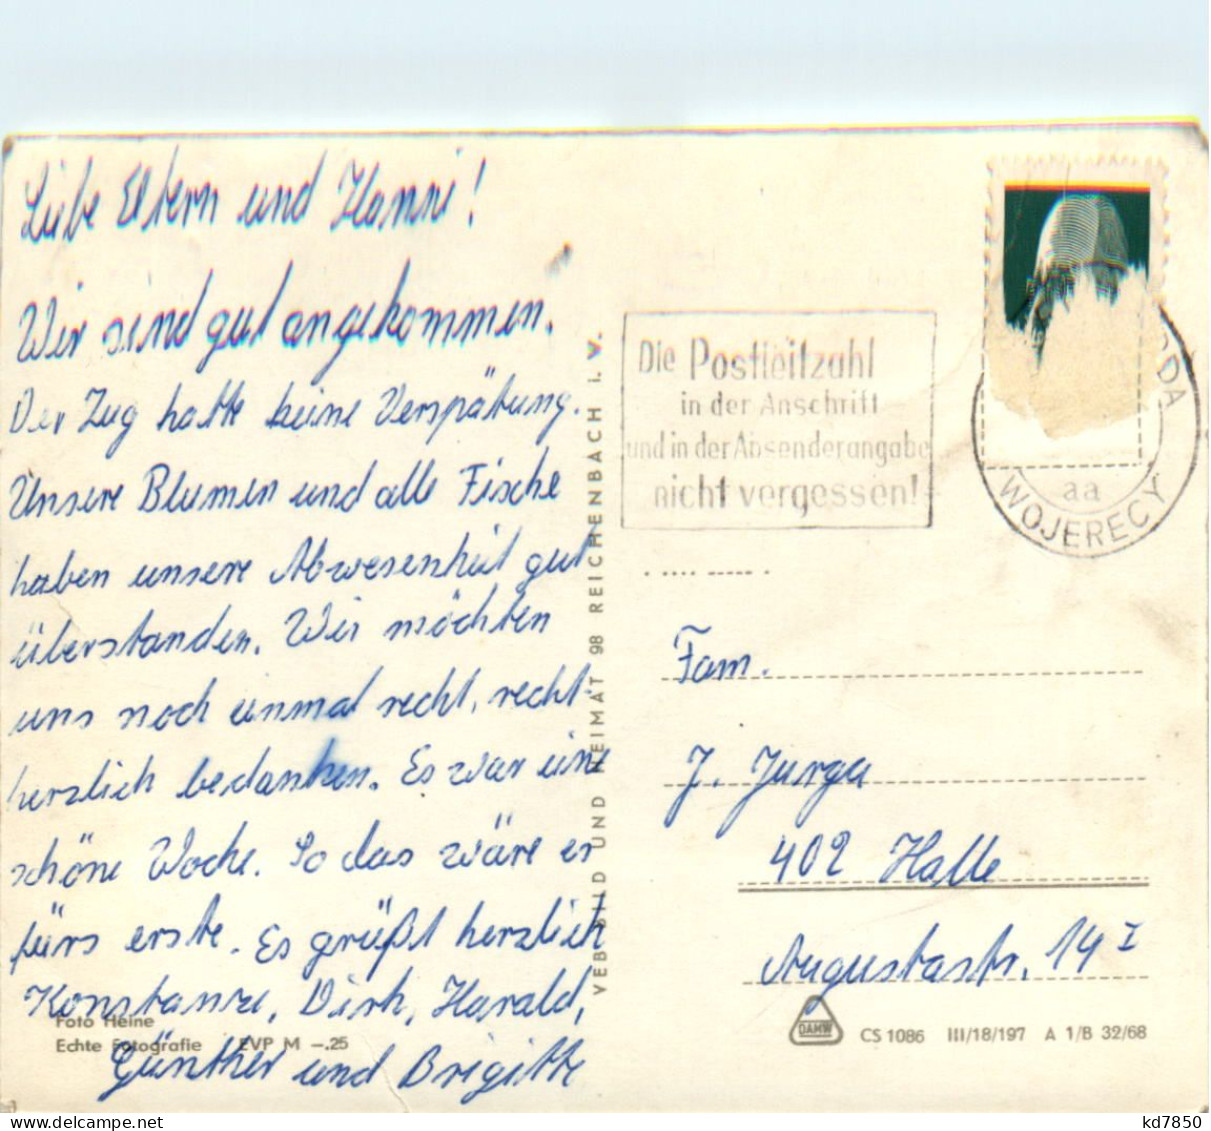 Liebe Eltern und Hanni!
Wir sind gut angekommen.
Der Zug hatte keine Verspätung.
Unsere Blumen und alle Fische
haben unsere Abwesenheit gut
überstanden. Wir möchten
uns noch einmal recht, recht
herzlich bedanken. Es war eine
schöne Woche. So das wäre es
fürs erste. Es grüßt herzlich
Konstanze, Dirk, Harald,
Günther und Brigitte
Foto Heine
Echte Fotografie EVP M –.25
VEB BILD UND HEIMAT 98 REICHENBACH I. V.
Die Postleitzahl
in der Anschrift
und in der Absenderangabe
nicht vergessen!
WOJERECY
aa
Fam.
J. Jurga
402 Halle
Augustastr. 14 I
DAMW
CS 1086 III/18/197 A 1/B 32/68
kd7850